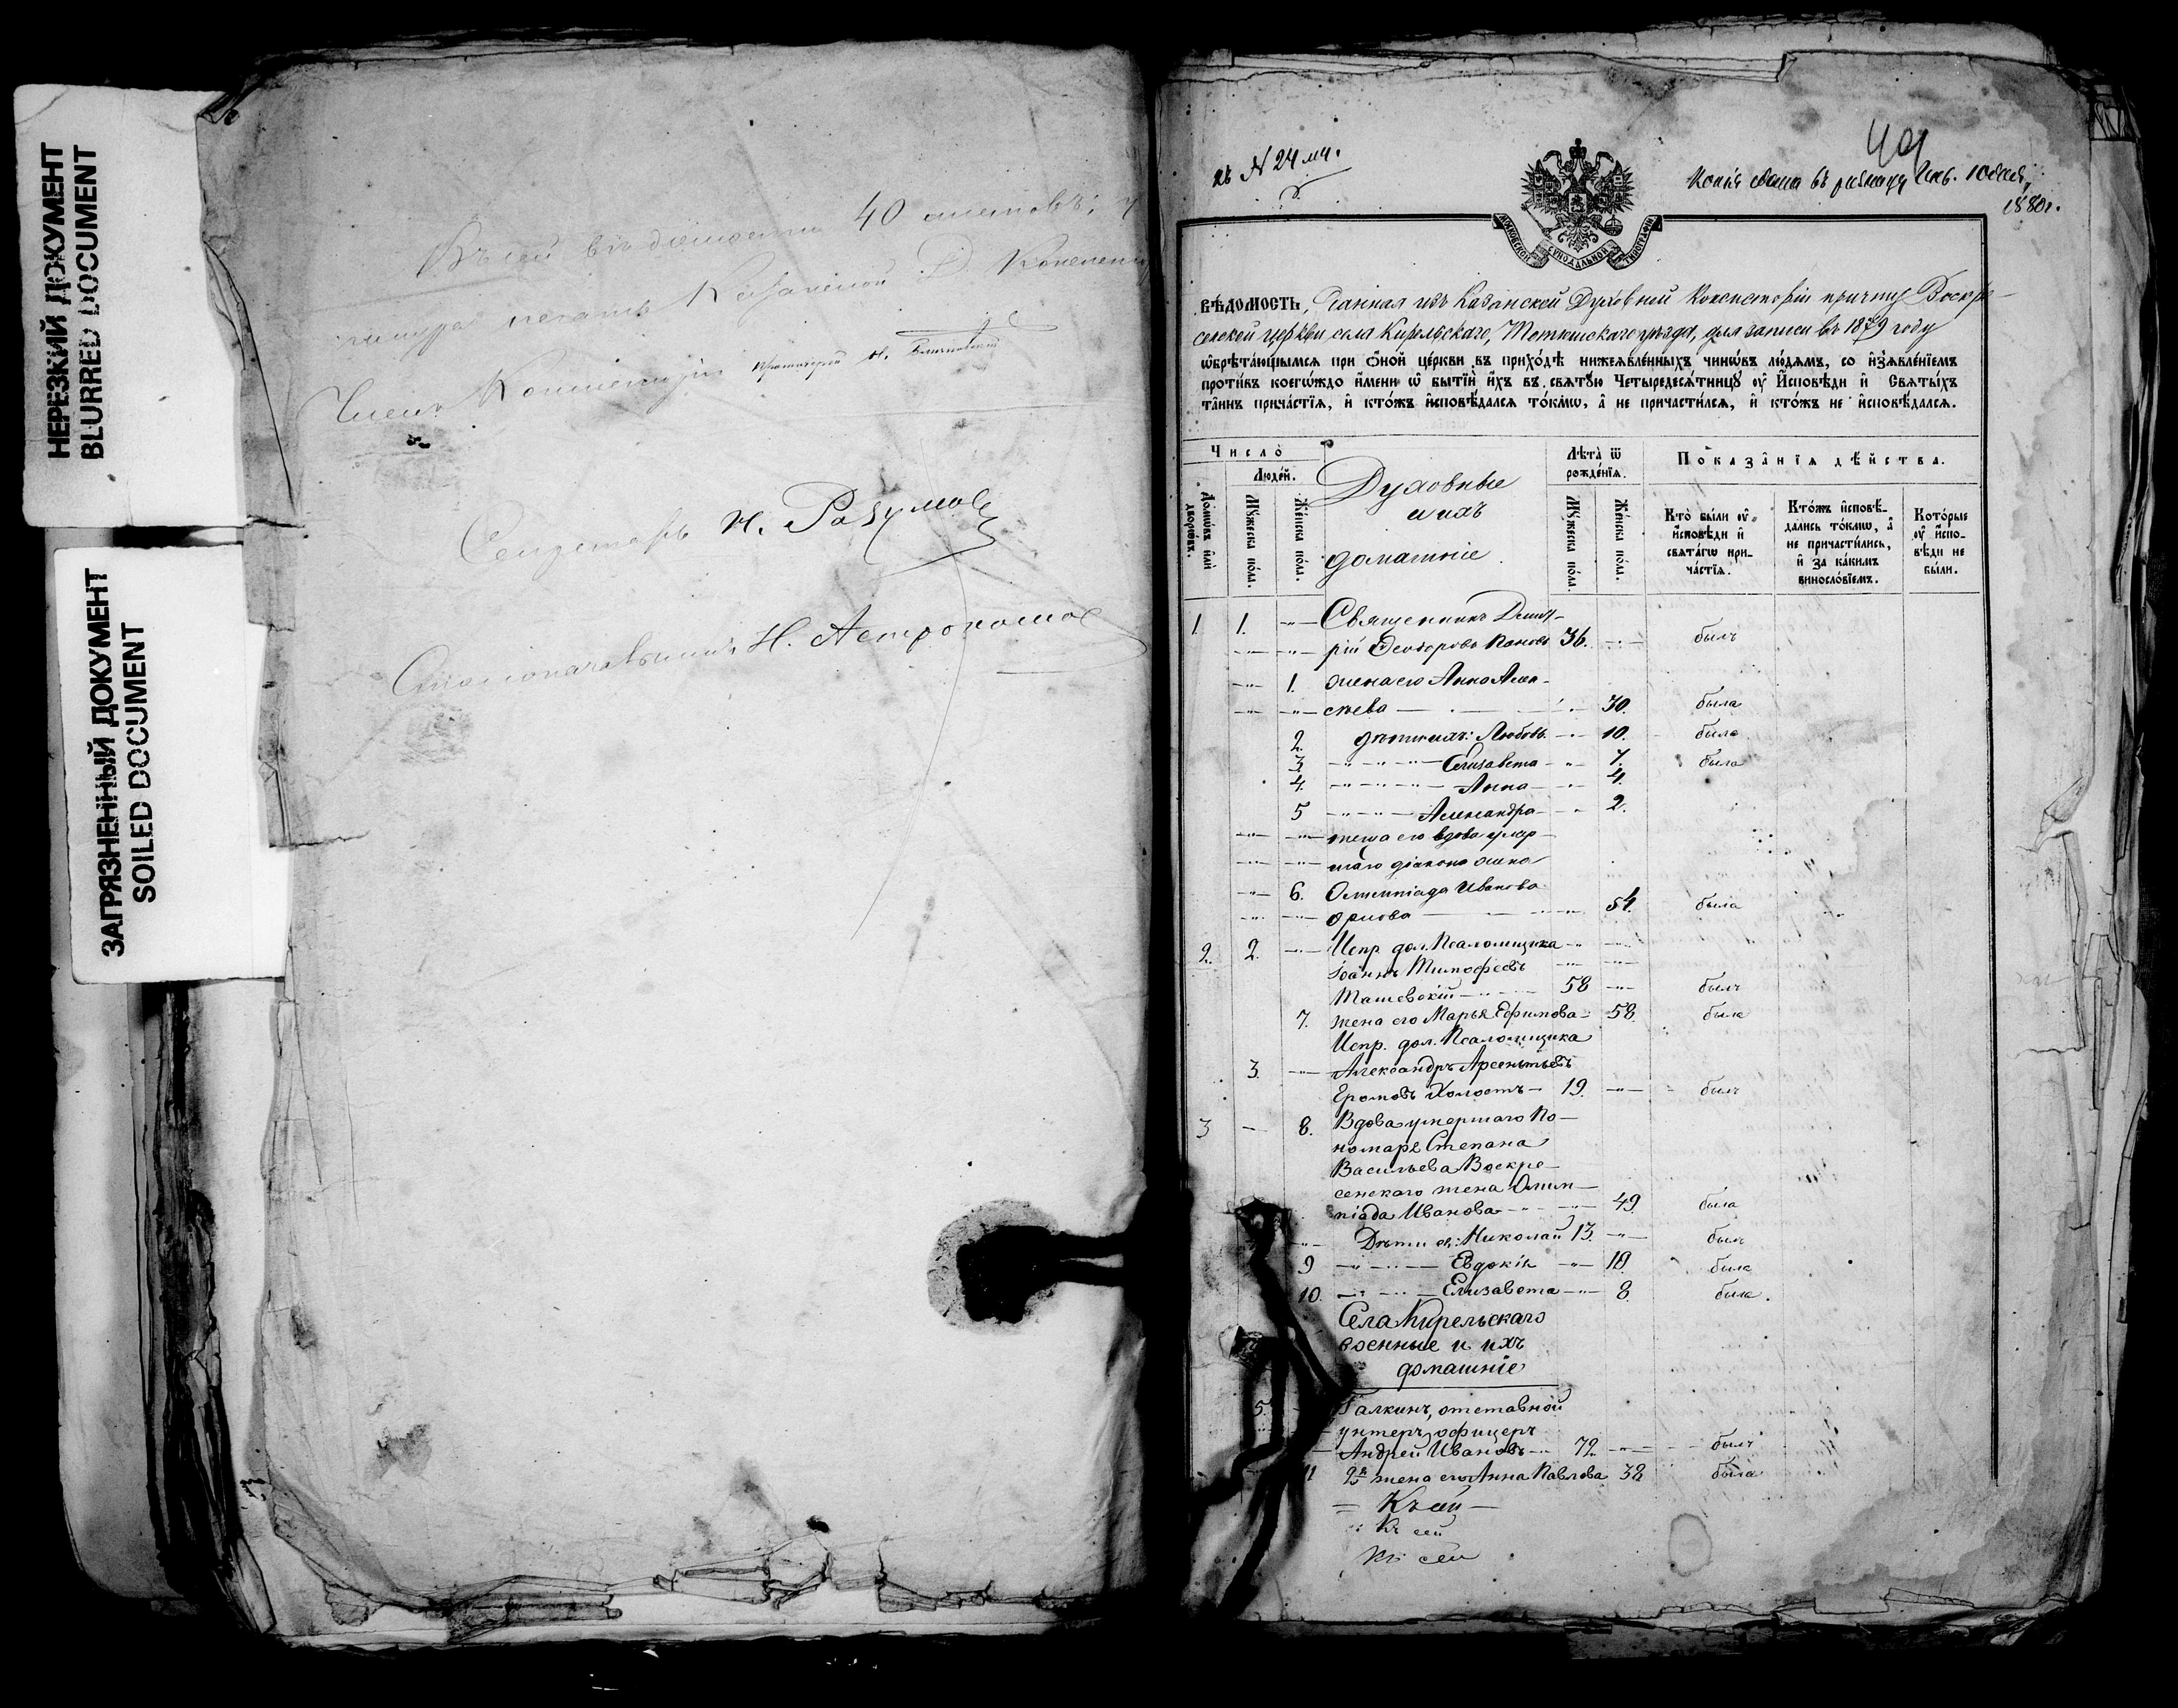 НЕРЕЗКИЙ ДОКУМЕНТ
BLURRED DOCUMENT
ЗАГРЯЗНЕННЫЙ ДОКУМЕНТ
SOILED DOCUMENT
40 листовъ, и
печать Казанской Д. Консисто
Членъ Консисторіи Протоіерей
Секретарь Н. Разумов
Столоначальникъ Н. Астрономов
№ 24
Копія въ 10 дня,
1880 г.
МОСКОВСКОЙ СѴНОДАЛЬНОЙ ТИПОГРАФІИ
ВѢДОМОСТЬ, Данная изъ Казанской Духовной Консисторіи причту Воскре-
сенской церкви села Кирельскаго, Тетюшскаго уѣзда, для записи въ 1879 году
ѡ҆брѣта́ющымсѧ при ѻ҆́ной це́ркви въ прихо́дѣ нижеѧвле́нныхъ чинѡ́въ лю́дѧмъ, со и҆з̾ѧвле́нїемъ
проти́въ коегѡ́ждо и҆́мени ѡ҆ бытїѝ и҆́хъ въ свѧту́ю Четыредесѧ́тницꙋ ᲂу҆ И҆́сповѣди и҆ Свѧты́хъ
та́инъ прича́стїѧ, и҆ кто́жъ и҆сповѣ́далсѧ то́кмѡ, а҆ не причасти́лсѧ, и҆ кто́жъ не и҆сповѣ́далсѧ.
Число̀
Людє́й.
Домѡ́въ и҆лѝ дворѡ́въ.
Мꙋ́жеска по́ла.
Же́нска по́ла.
Духовные
и ихъ
домашніе.
Лѣта̀ ѿ рожде́нїѧ.
Мꙋ́жеска по́ла.
Же́нска по́ла.
Показа̑нїѧ дѣ́йства.
Кто̀ бы́ли ᲂу҆ и҆́сповѣди и҆ свѧта́гѡ при-ча́стїѧ.
Кто́жъ и҆сповѣ́-дались то́кмѡ, а҆ не причасти́лись, и҆ за ка́кимъ винослⷪ҇вїемъ.
Кото́рые ᲂу҆ и҆спо-вѣди не бы́ли.
1. 1. Священникъ Димит-
рій Ѳеодоровъ Пановъ 36. былъ
1. жена его Анна Алек-
сѣева 30. была
2. дѣти ихъ: Любовь 10. была
3 Елизавета 7. была
4. Анна 4.
5 Александра 2.
теща его вдова умер-
шаго діакона жена
6. Олимпіада Иванова
Орлова 54. была
2. 2. Испр. дол. Псаломщика
Іоаннъ Тимофеевъ
Ташевскій 58 былъ
7. жена его Марья Ефимова 58. была
Испр. дол. Псаломщика
3. Александръ Арсентьевъ
Громовъ Холостъ 19. былъ
3 8. Вдова умершаго По-
номаря Степана
Васильева Воскре-
сенскаго жена Олим-
піада Иванова 49. была
Дѣти ея: Николай 13. былъ
9 Евдокія 18. была
10. Елизавета 8. была.
Села Кирельскаго
военные и ихъ
домашніе
5. Галкинъ, отставной
унтеръ офицеръ
Андрей Ивановъ 72. былъ
11 2я жена его Анна Павлова 38 была
Къ сей
Къ сей
Къ сей